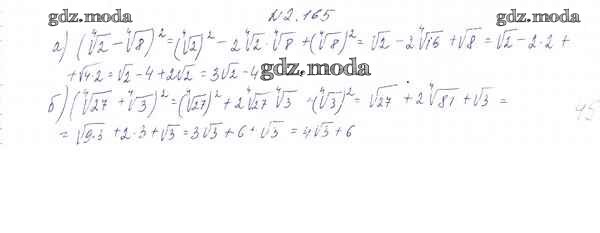 gdz.moda №2.165 gdz.moda
а) (⁴√2 − ⁴√8)² = (⁴√2)² − 2 ⁴√2 · ⁴√8 + (⁴√8)² = √2 − 2 ⁴√16 + √8 = √2 − 2·2 +
+ √4·2 = √2 − 4 + 2√2 = 3√2 − 4 gdz.moda
б) (⁴√27 + ⁴√3)² = (⁴√27)² + 2 ⁴√27 ⁴√3 + (⁴√3)² = √27 + 2 ⁴√81 + √3 =
= √9·3 + 2·3 + √3 = 3√3 + 6 + √3 = 4√3 + 6